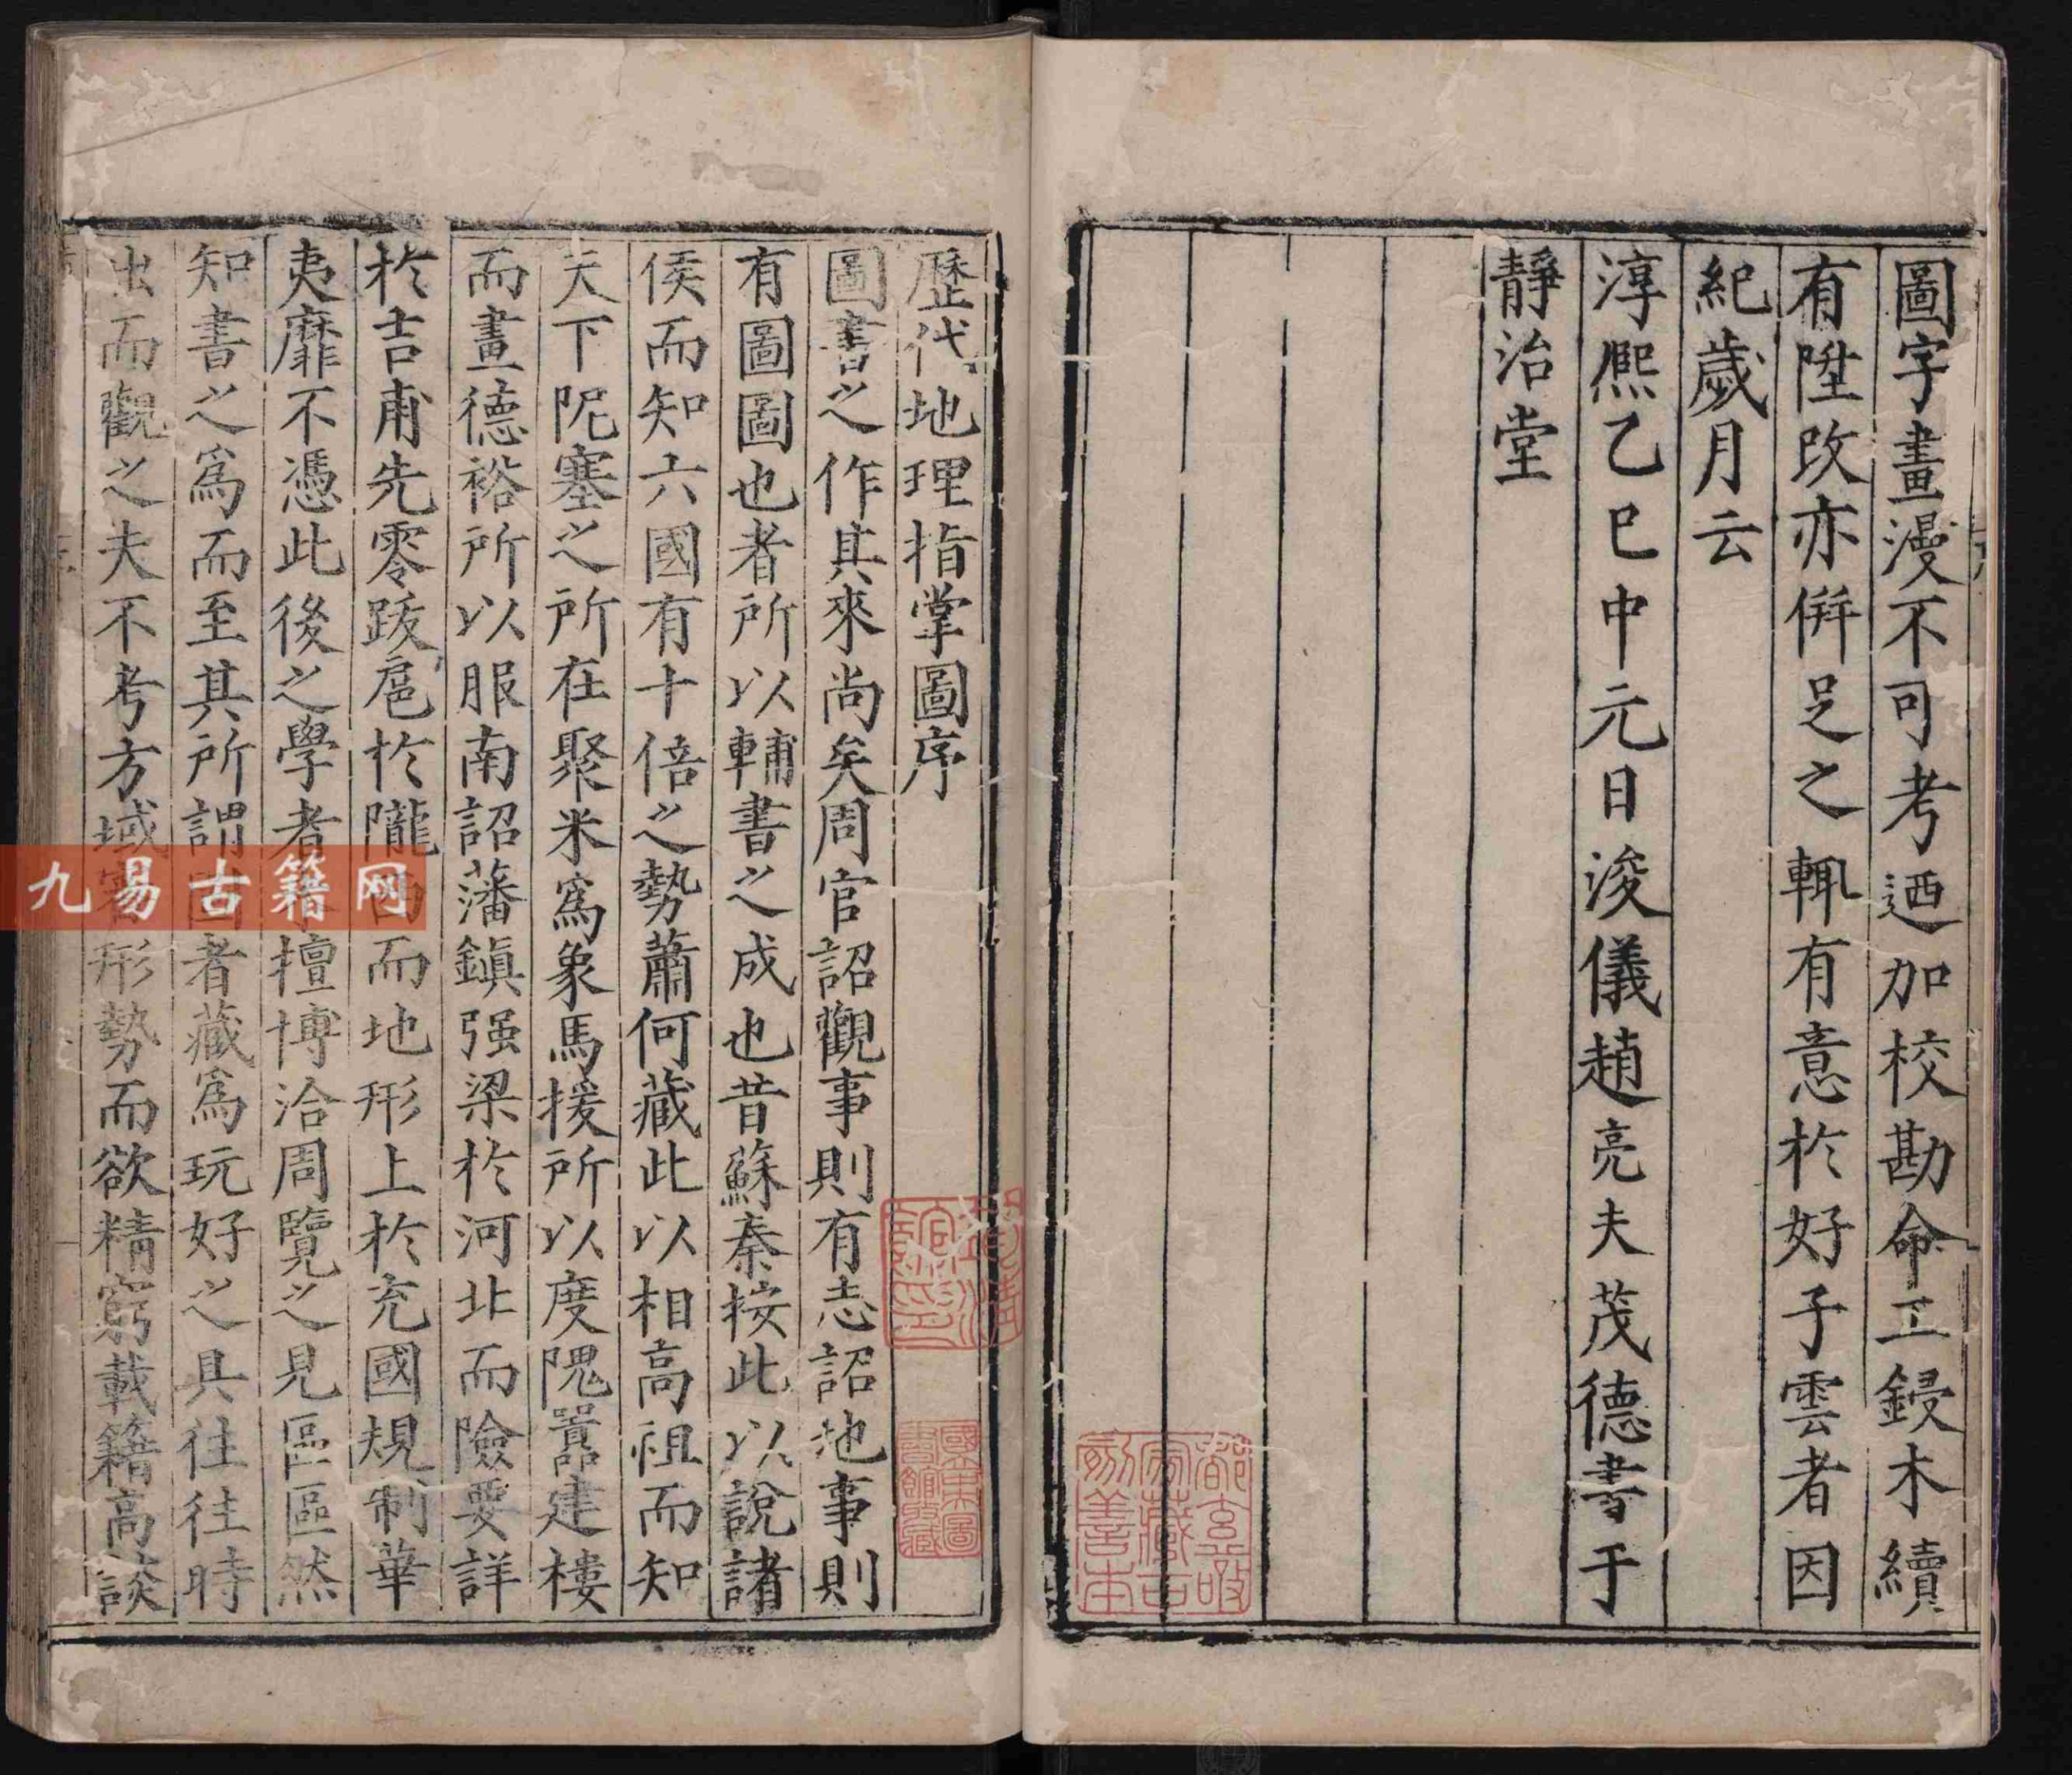 圖字畫漫不可考迺加校勘命工鋟木續
有陞改亦併足之輒有意於好子雲者因
紀歲月云
淳熙乙巳中元日浚儀趙亮夫茂德書于
靜治堂
歷代地理指掌圖序
圖書之作其來尚矣周官詔觀事則有志詔地事則
有圖圖也者所以輔書之成也昔蘇秦按此以說諸
侯而知六國有十倍之勢蕭何藏此以相高祖而知
天下阨塞之所在聚米爲象馬援所以度隗囂建樓
而畫德裕所以服南詔藩鎮强梁於河北而險要詳
於吉甫先零跋扈於隴而地形上於充國規制華
夷靡不憑此後之學者擅博洽周覽之見區區然
知書之爲而至其所謂圖者藏爲玩好之具往往時
出而觀之夫不考方域審形勢而欲精窮載籍高談
九易古籍网
國立北平圖書館收藏